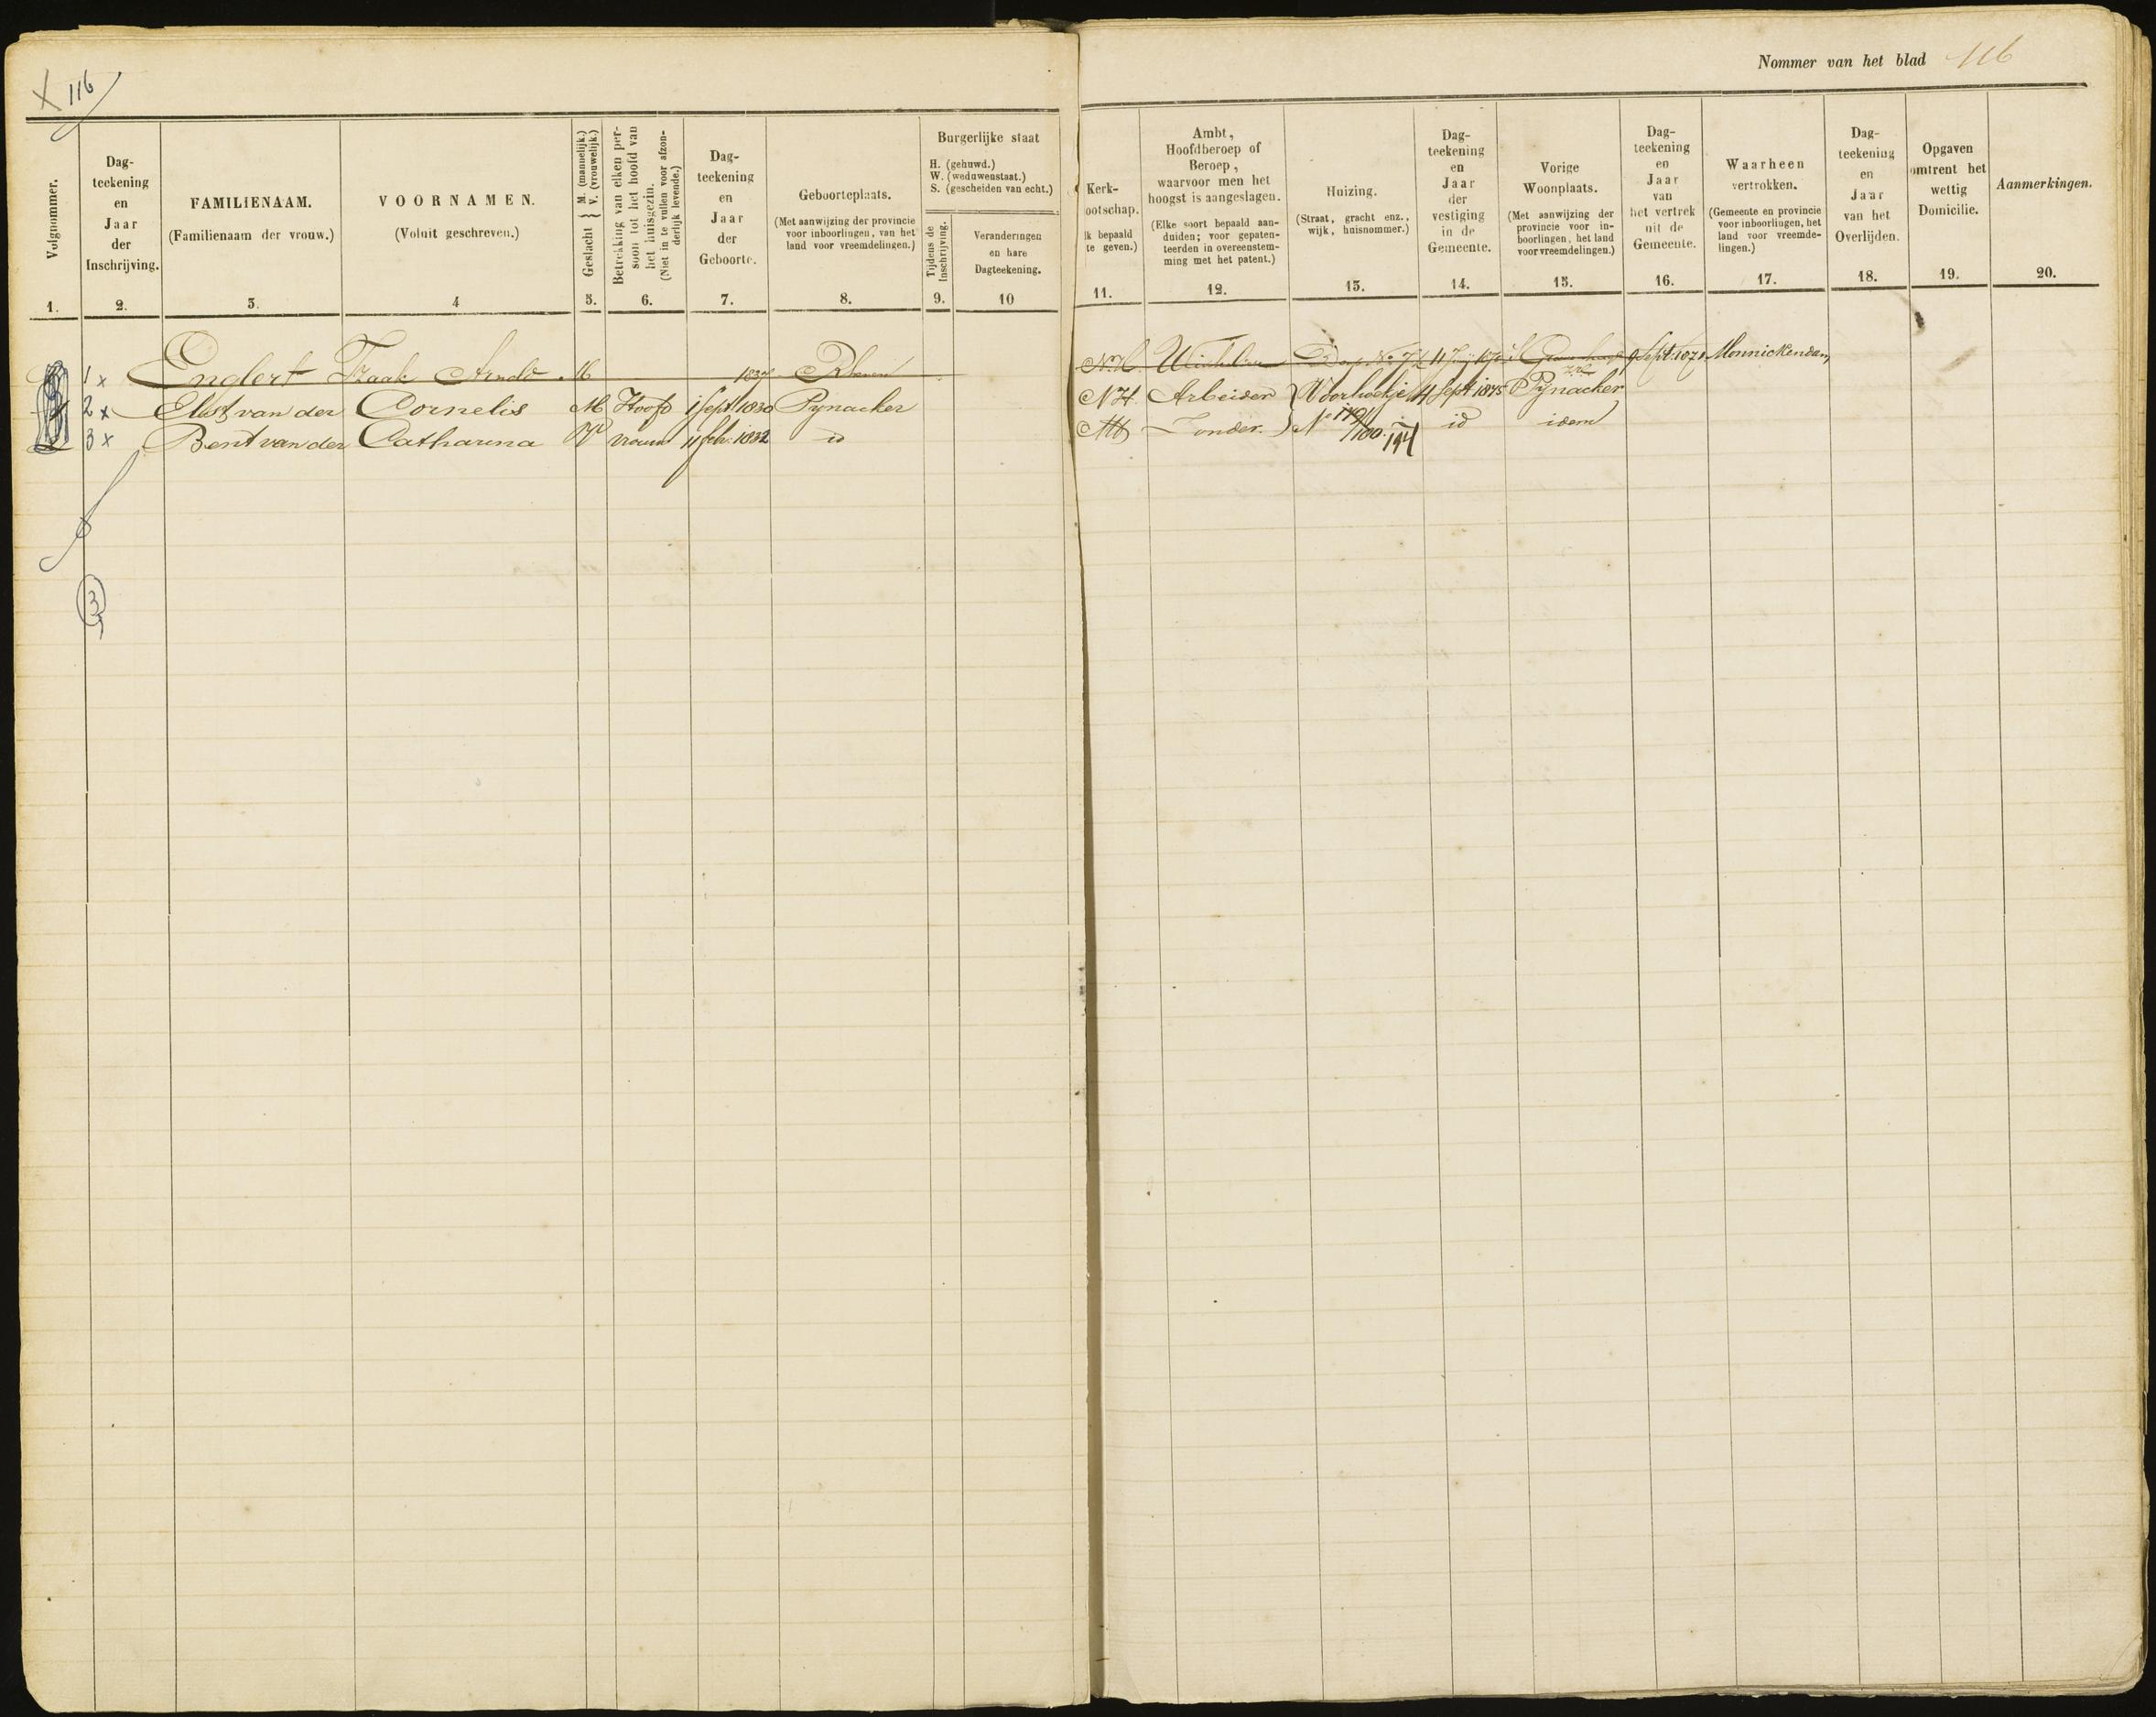 X 116
Nommer van het blad 116
Volgnommer.
Dag-
teekening
en
Jaar
der
Inschrijving.
FAMILIENAAM.
(Familienaam der vrouw.)
VOORNAMEN.
(Voluit geschreven.)
Geslacht { M. (mannelijk.)
V. (vrouwelijk.)
Betrekking van elken per-
soon tot het hoofd van
het huisgezin.
(Niet in te vullen voor afzon-
derlijk levende.)
Dag-
teekening
en
Jaar
der
Geboorte.
Geboorteplaats.
(Met aanwijzing der provincie
voor inboorlingen, van het
land voor vreemdelingen.)
Burgerlijke staat
H. (gehuwd.)
W. (weduwenstaat.)
S. (gescheiden van echt.)
Tijdens de
Inschrijving.
Veranderingen
en hare
Dagteekening.
Kerk-
ootschap.
lk bepaald
te geven.)
Ambt,
Hoofdberoep of
Beroep,
waarvoor men het
hoogst is aangeslagen.
(Elke soort bepaald aan-
duiden; voor gepaten-
teerden in overeenstem-
ming met het patent.)
Huizing.
(Straat, gracht enz.,
wijk, huisnommer.)
Dag-
teekening
en
Jaar
der
vestiging
in de
Gemeente.
Vorige
Woonplaats.
(Met aanwijzing der
provincie voor in-
boorlingen, het land
voor vreemdelingen.)
Dag-
teekening
en
Jaar
van
het vertrek
uit de
Gemeente.
Waarheen
vertrokken.
(Gemeente en provincie
voor inboorlingen, het
land voor vreemde-
lingen.)
Dag-
teekening
en
Jaar
van het
Overlijden.
Opgaven
omtrent het
wettig
Domicilie.
Aanmerkingen.
1. 2. 3. 4 5. 6. 7. 8. 9. 10 11. 12. 13. 14. 15. 16. 17. 18. 19. 20.
1 x Englert Izaak Arnold M 1837 Rhenen N.H. Dorp No 72 Sept. 1871 Monnickendam
2 x Elst van der Cornelis M Hoofd 1 Sept 1830 Pynacker NH. Arbeider Sept 1875 Pynacker
3 x Bent van der Catharina V vrouw 11 feb. 1832 id Zonder No 179 180. 194 id idem
3